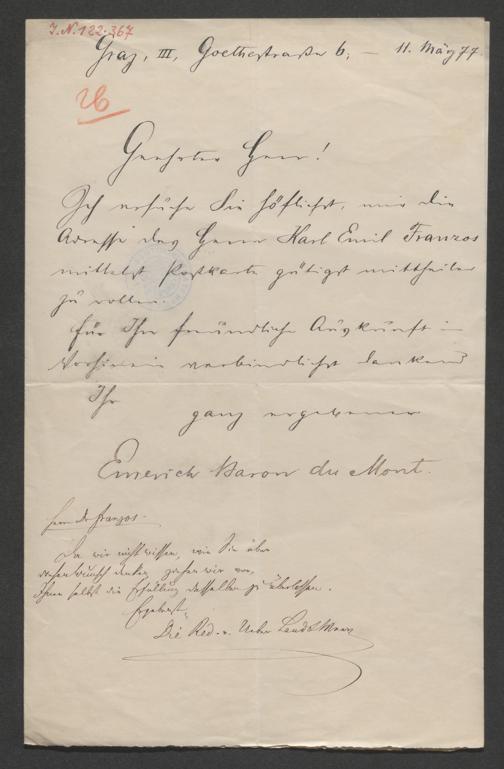 I.N. 122.367
Graz, III, Goethestraße 6; — 11. März 77
26
Geehrter Herr!
Ich ersuche Sie höflichst, mir die
Adresse des Herrn Karl Emil Franzos
mittelst Postkarte gütigst mittheilen
zu wollen.
Für Ihre freundliche Auskunft im
Vorhinein verbindlichst dankend
Ihr ganz ergebener
Emerich Baron du Mont.
Herrn Dr Franzos.
Da wir nicht wissen, wie Sie über
diesen Wunsch denken, ziehen wir vor,
Ihnen selbst die Erfüllung desselben zu überlassen.
Ergebenst,
Die Red. v. Ueber Land & Meer